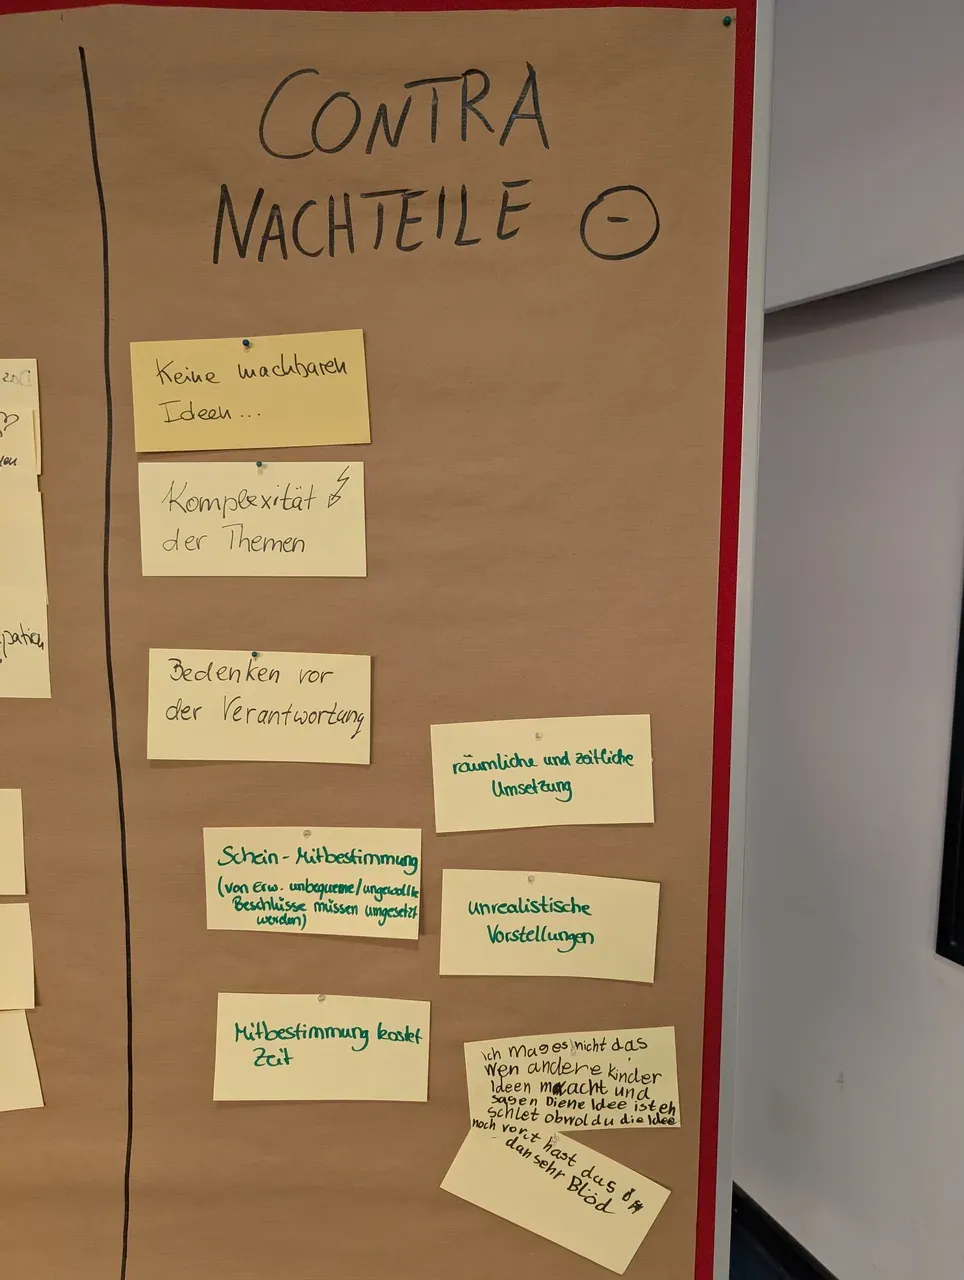 CONTRA
NACHTEILE -
Keine machbaren
Ideen...
Komplexität
der Themen
Bedenken vor
der Verantwortung
räumliche und zeitliche
Umsetzung
Schein-Mitbestimmung
(von Erw. unbequeme/ungewollte
Beschlüsse müssen umgesetzt
werden)
unrealistische
Vorstellungen
Mitbestimmung kostet
Zeit
ich mages nicht das
wen andere kinder
Ideen macht und
sagen Diene Idee ist eh
schlet obwol du die Idee
noch vorit hast das
dan sehr Blöd
Das
pation